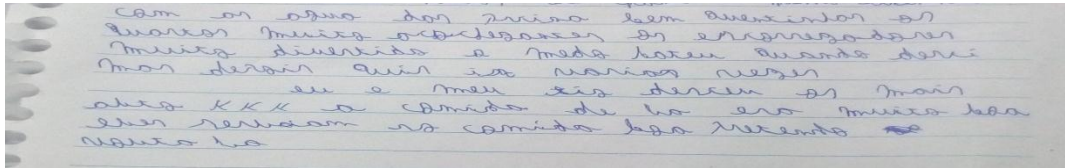 com as agua das psina bem quentinhas os
quartos muito aconchegantes os escorregadores
muito divertido o medo bateu quando desci
mas depois quis ir varias vezes
eu e meu tio desceu os mais
alto KKK a comida de la era muito boa
eles serviam so comida boa